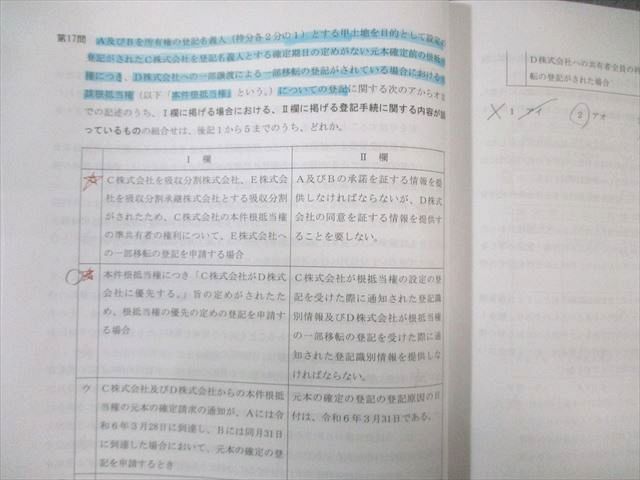 第17問　A及びBを所有権の登記名義人（持分各2分の1）とする甲土地を目的として設定の
登記がされたC株式会社を登記名義人とする確定期日の定めがない元本確定前の根抵
権につき、D株式会社への一部譲渡による一部移転の登記がされている場合における
該根抵当権（以下「本件根抵当権」という。）についての登記に関する次のアからオま
での記述のうち、Ⅰ欄に掲げる場合における、Ⅱ欄に掲げる登記手続に関する内容が誤
っているものの組合せは、後記1から5までのうち、どれか。
Ⅰ 欄
Ⅱ 欄
C株式会社を吸収分割株式会社、E株式会
社を吸収分割承継株式会社とする吸収分割
がされたため、C株式会社の本件根抵当権
の準共有者の権利について、E株式会社へ
の一部移転の登記を申請する場合
A及びBの承諾を証する情報を提
供しなければならないが、D株式
会社の同意を証する情報を提供す
ることを要しない。
本件根抵当権につき「C株式会社がD株式
会社に優先する。」旨の定めがされたた
め、根抵当権の優先の定めの登記を申請す
る場合
C株式会社が根抵当権の設定の登
記を受けた際に通知された登記識
別情報及びD株式会社が根抵当権
の一部移転の登記を受けた際に通
知された登記識別情報を提供しな
ければならない。
ウ
C株式会社及びD株式会社からの本件根抵
当権の元本の確定請求の通知が、Aには令
和6年3月28日に到達し、Bには同月31日
に到達した場合において、元本の確定の登
記を申請するとき
元本の確定の登記の登記原因の日
付は、令和6年3月31日である。
D株式会社への共有者全員の持
転の登記がされた場合
1 アイ
2 アオ